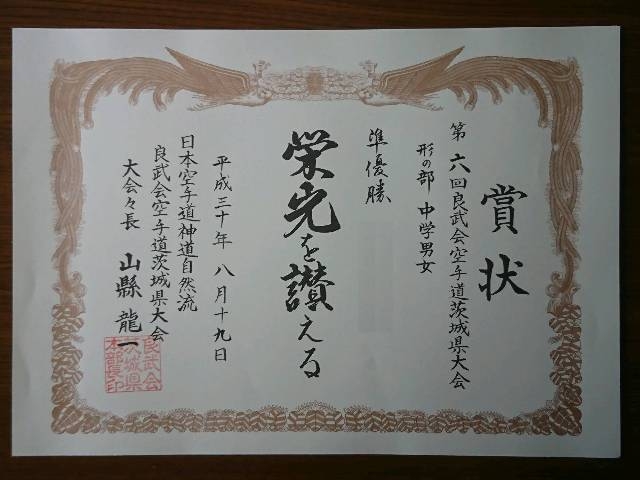 賞状
第六回良武会空手道茨城県大会
形の部 中学男女
準優勝
栄光を讃える
平成三十年八月十九日
日本空手道神道自然流
良武会空手道茨城県大会
大会々長 山縣龍一
良武会
茨城県
本部長印